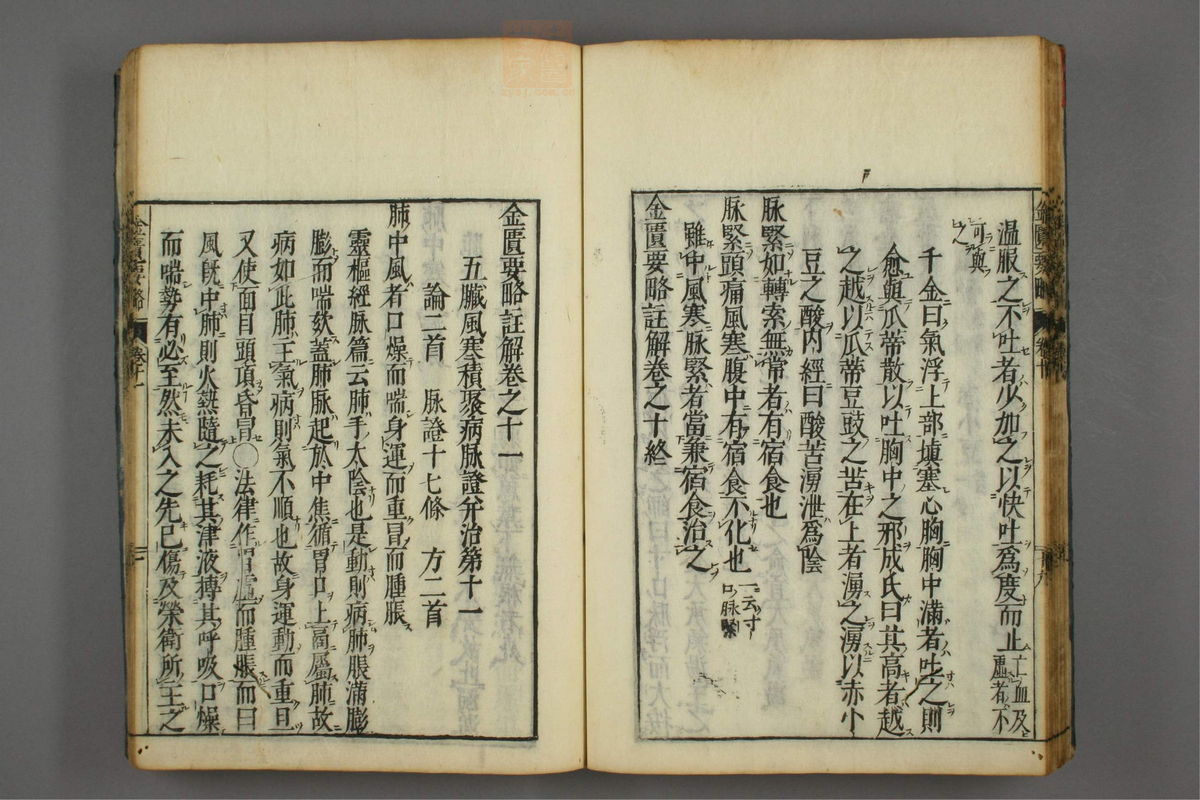 温服之不吐者少加之以快吐爲度而止亡血及虛者不
可與之
千金曰氣浮上部塡塞心胸胸中滿者吐之則
愈與瓜蒂散以吐胸中之邪成氏曰其高者越
之越以瓜蒂豆豉之苦在上者湧之湧以赤小
豆之酸內經曰酸苦湧泄爲陰
脉緊如轉索無常者有宿食也
脉緊頭痛風寒腹中有宿食不化也一云寸口脉緊
雖中風寒脉緊者當兼宿食治之
金匱要略註解卷之十終
金匱要略註解卷之十一
五臟風寒積聚病脉證并治第十一
論二首 脉證十七條 方二首
肺中風者口燥而喘身運而重冒而腫脹
靈樞經脉篇云肺手太陰也是動則病肺脹滿膨
膨而喘欬蓋肺脉起於中焦循胃口上高屬肺故
病如此肺主氣氣病則氣不順也故身運動而重且
又使面目頭項昏冒○法律作冒虛而腫脹而曰
風旣中肺則火熱隨之耗其津液搏其呼吸口燥
而喘勢有必至然未入之先已傷及榮衛所主之
金匱要略 卷十一